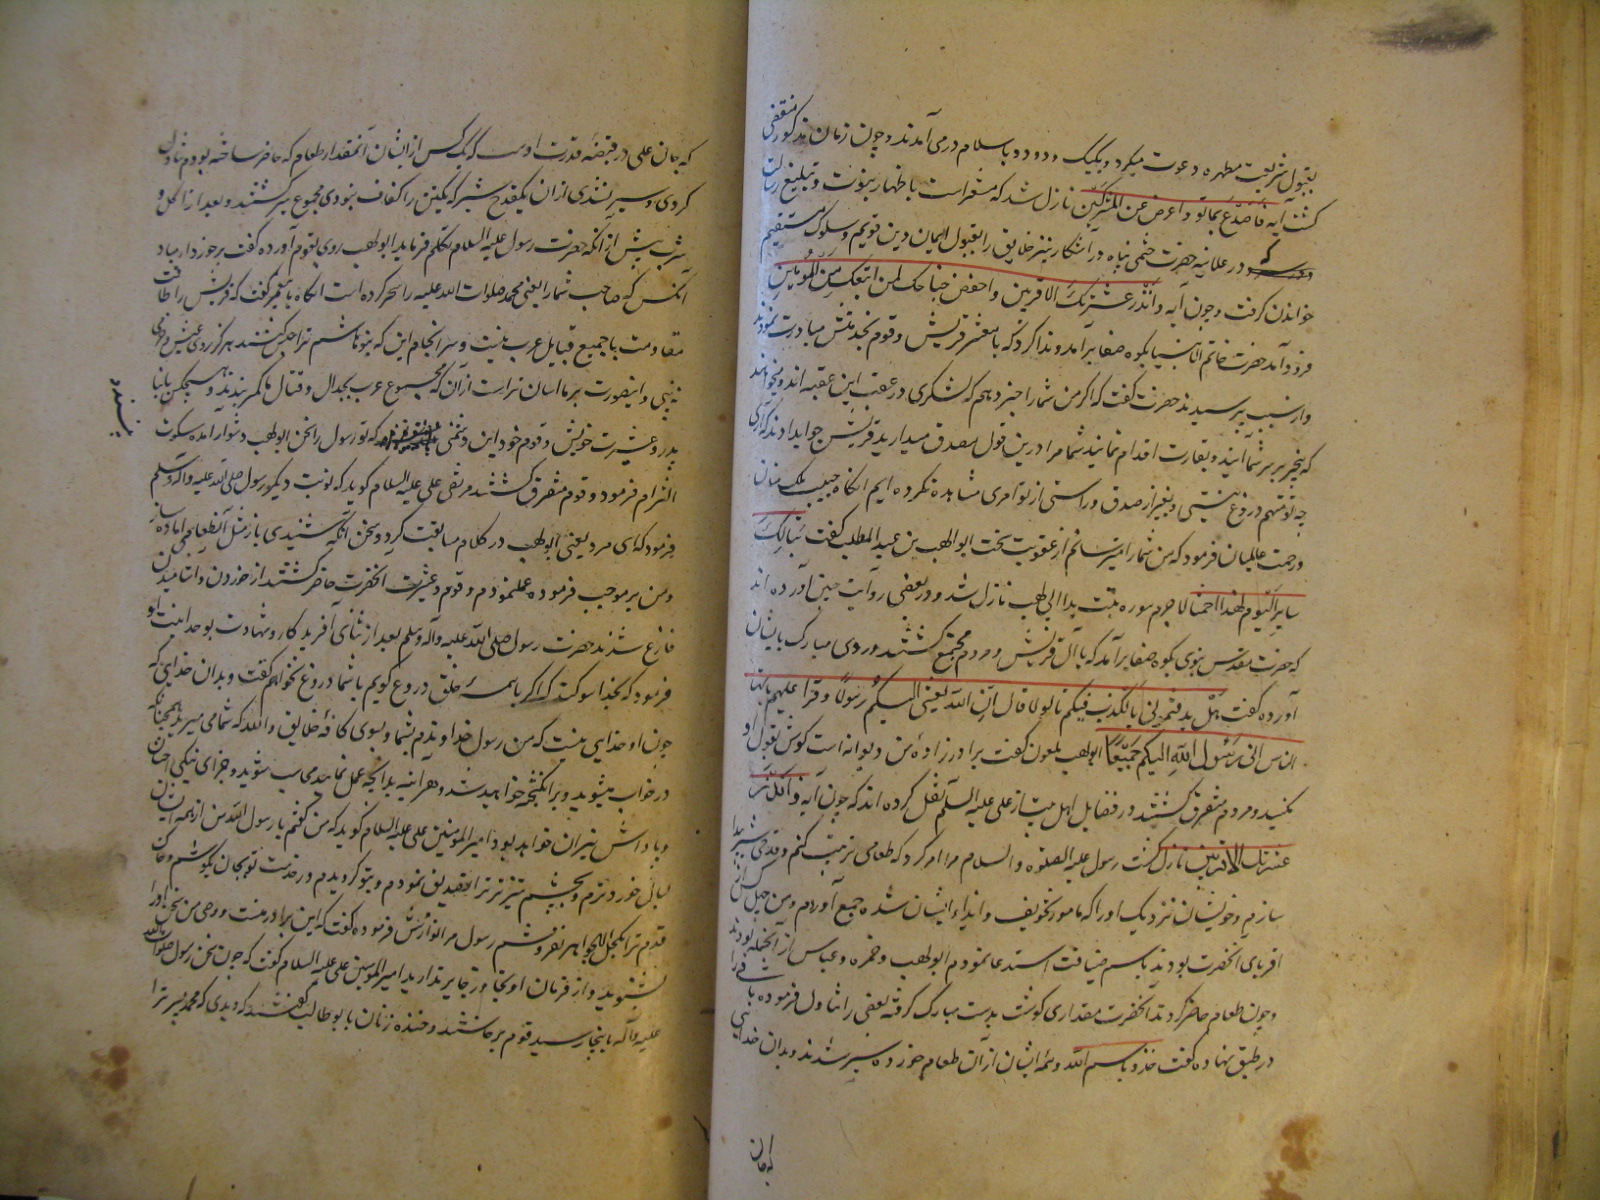 بقبول شریعت مطهره دعوت میکرد و یکیک و دودو باسلام درمی آمدند و چون زمان مذکور منقضی
کشت آیه فاصدع بما تؤمر و اعرض عن المشرکین نازل شد که مشعر است باظهار نبوت و تبلیغ رسالت
و در علانیه حضرت ختمی پناه در آشکار نیز خلایق را بقبول ایمان دین قویم و سلوک مستقیم
خواندن کرفت و چون آیه و انذر عشیرتک الاقربین و اخفض جناحک لمن اتبعک من المؤمنین
فرود آمد حضرت خاتم الانبیا بکوه صفا برآمد و ندا کرد که یا معشر قریش و قوم بخدمتش مبادرت نمودند
و از سبب پرسیدند حضرت کفت که اکر من شما را خبر دهم که لشکری در عقب این عقبه اند و میخواهند
که بیخبر بر سر شما آیند و بغارت اقدام نمایند شما مرا درین قول مصدق میدارید قریش جواب دادند که آری
چه تو متهم دروغ نیستی و بغیر از صدق و راستی از تو امری مشاهده نکرده ایم انکاه حبیب ملک منان
و رحمت عالمیان فرمود که من شما را میترسانم از عقوبت سخت ابو لهب بن عبد المطلب کفت تبا لک
سایر الیوم لهذا اجمعتنا لاجرم سوره تبت یدا ابی لهب نازل شد و در بعضی روایت چنین آورده اند
که حضرت مقدس نبوی بکوه صفا برآمد که یا آل قریش و مردم مجتمع کشتند و روی مبارک بایشان
آورده کفت هل یدفتمونی بالکذب فیکم قالوا لا قال ان الله بعثنی الیکم رسولا و قرا علیهم یا ایها
الناس انی رسول الله الیکم جمیعا ابو لهب ملعون کفت برادرزاده من دیوانه است کوش بقول او
نکنید و مردم متفرق کشتند در فضایل اهل بیت از علی علیه السلم نقل کرده اند که چون آیه و انذر
عشیرتک الاقربین نازل کشت رسول علیه الصلوه و السلام مرا امر کرد که طعامی ترتیب کنم و قدحی شیر پیدا
سازم و خویشان نزدیک او را که مامور بتخویف و انذار ایشان شده جمع آورم و من چهل کس از
اقربای انحضرت بودند باسم ضیافت استدعا نمودم ابو لهب و حمزه و عباس از انجمله بودند
و چون طعام حاضر کردند انحضرت مقداری کوشت بدست مبارک کرفته بعضی را تناول فرموده باقی را
در طبق نهاده کفت خذوا بسم الله و همه ایشان از آن طعام خورده سیر شدند و بدان خدایی
که جان
که جان علی در قبضه قدرت اوست که یک کس از ایشان آنمقدار طعام که حاضر ساخته بودم تناول
کردی و سیر نشدی از ان یکقدح شیر که یکتن را کفاف بنودی مجموع سیر کشتند و بعد از اکل و
شرب پیش از آنکه حضرت رسول علیه السلام تکلم فرماید ابو لهب روی بقوم آورده کفت برخوردار مباد
انکس که صاحب شما را یعنی محمد صلوات الله علیه را سحر کرده است انکاه با پیغمبر کفت که قریش را طاقت
مقاومت با جمیع قبایل عرب نیست و سرانجام این که بنو هاشم ترا حبس کنند هرکز روی عیش و خرمی
نه بینی و اینصورت بر ما اسان تر است از آن که مجموع عرب بجدال و قتال ما کمر بندند و هیچکس با ابنا
پدر و عشیرت خویش و قوم خود این دشمنی که تو رسول را سخن ابو لهب دشوار آمده سکوت
التزام فرمود و قوم متفرق کشتند مرتضی علی علیه السلام کوید که نوبت دیکر رسول صلی الله علیه و اله وسلم
فرمود که ای مرد یعنی ابو لهب در کلام مسابقت کرد و سخن آنکه شنیدی باز مثل آنطعام مهیا آماده ساز
و من بر موجب فرموده عمل نمودم و قوم و عشیرت انحضرت حاضر کشتند از خوردن و اشامیدن
فارغ شدند حضرت رسول صلی الله علیه و آله وسلم بعد از ثنای آفریدکار و شهادت بوحدانیت او
فرمود که بخدا سوکند که اکر با همه خلق دروغ کویم با شما دروغ نخواهم کفت و بدان خدایی که
جون او خدایی نیست که من رسول خداوندم بشما و بسوی کافه خلایق و الله که شما می میرید همچنانکه
در خواب میشوید و برانکیخته خواهید شد و هر آینه بدانچه عمل نمایید محاسب شوید و جزای نیکی جنان
و پاداش نیران خواهد بود امیر المومنین علی علیه السلام کوید که من کفتم یا رسول الله من از همه ایشان
بسال خوردترم و بچشم تیزتر ترا تصدیق نمودم و بتو کرویدم و در خدمت تو بجان بکوشم و خاک
قدم ترا بکحل الجواهر نفروشم رسول مرا نوازش فرموده کفت که این برادر منست و وصی من سخن او را
بشنوید و از فرمان او تجاوز جایز ندارید امیر المومنین علی علیه السلام کفت که چون سخن رسول صلوات الله
علیه و آله باینجا رسید قوم برخاستند و خنده زنان با بو طالب کفتند که دیدی که محمد پسر ترا
پسندد